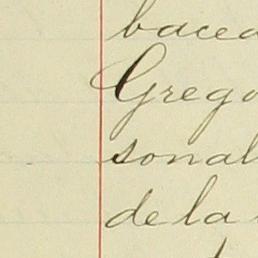 bacea
Grego
sonal
de la